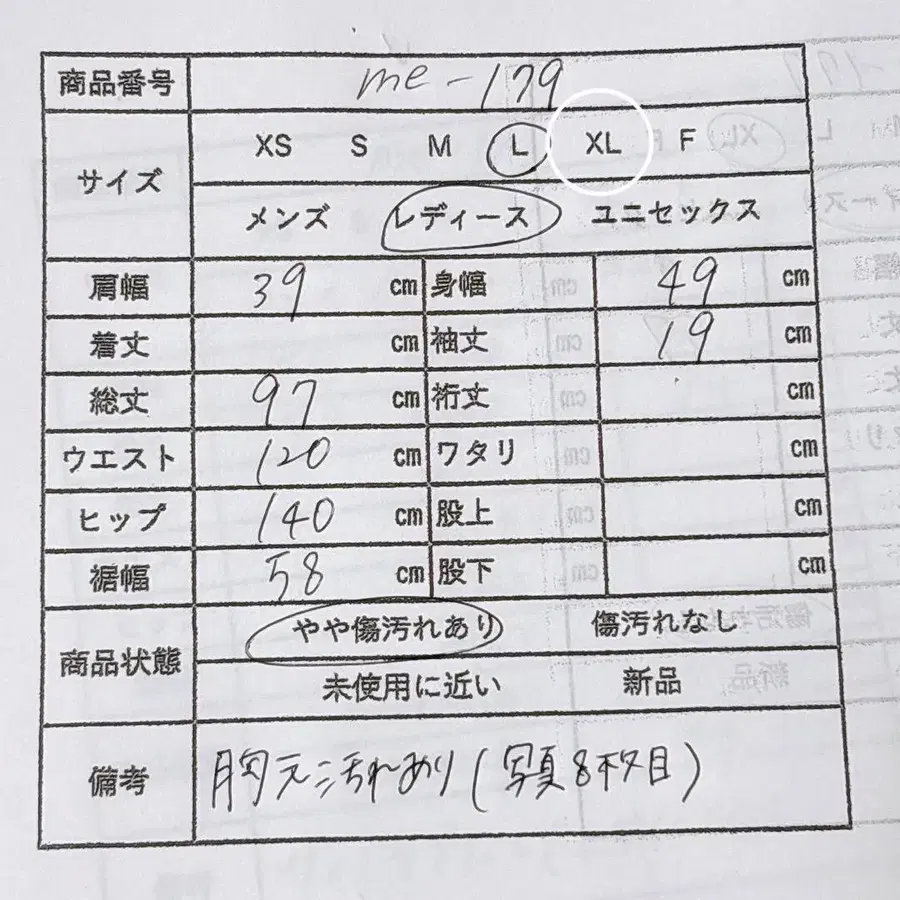 商品番号 me-179
サイズ XS S M L XL F
メンズ レディース ユニセックス
肩幅 39 cm 身幅 49 cm
着丈 cm 袖丈 19 cm
総丈 97 cm 裄丈 cm
ウエスト 120 cm ワタリ cm
ヒップ 140 cm 股上 cm
裾幅 58 cm 股下 cm
商品状態 やや傷汚れあり 傷汚れなし
未使用に近い 新品
備考 胸元汚れあり(写真8枚目)